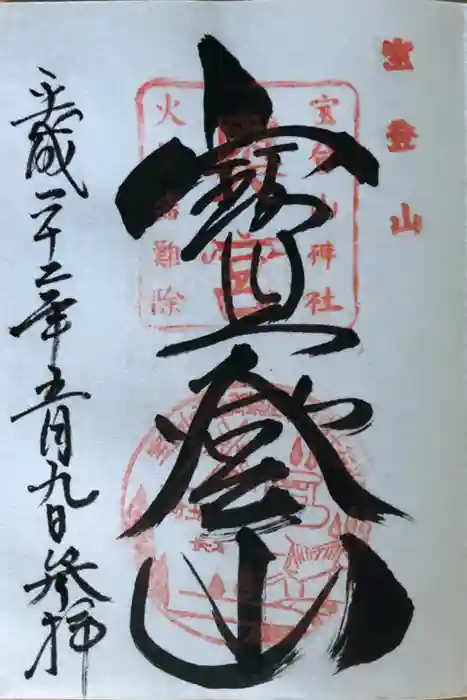 宝登山
寳登山
宝登山神社
火防盗賊難除
平成二十二年五月九日参拝